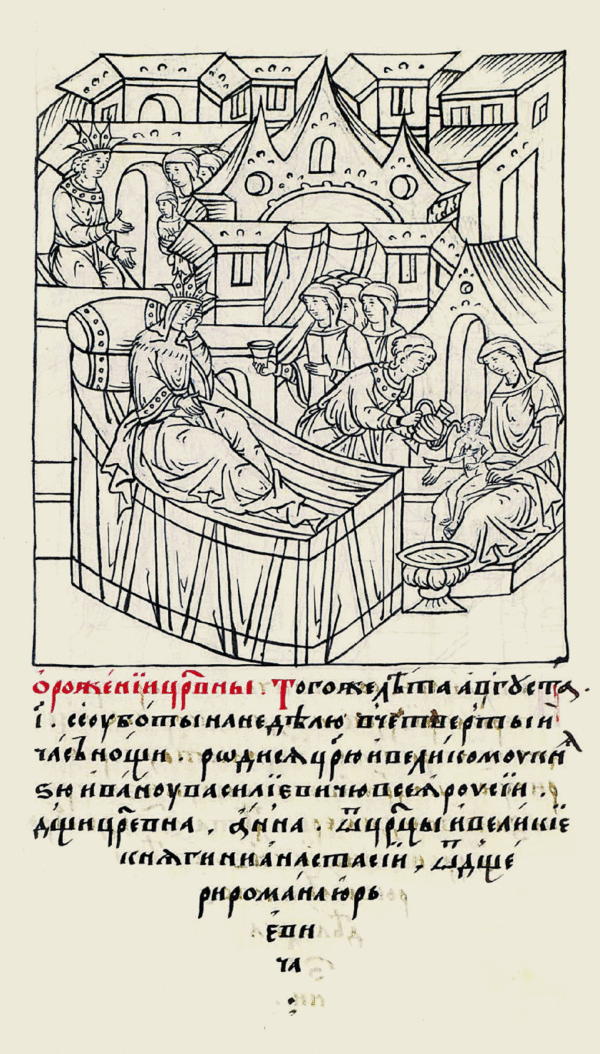 О рожении цр҃вны. Тогоже лѣта августа
і҃. с сѹботы на недѣлю в четвертый
часъ нощи. родися цр҃ю и великомѹ кнѧ
ѕю иванѹ василіевичю всеѧ рѹсіи.
дщи цр҃евна. анна. ѿ цр҃цы и великіе
княгини анастасіи, ѿ дще
ри романа юрь
еви
ча